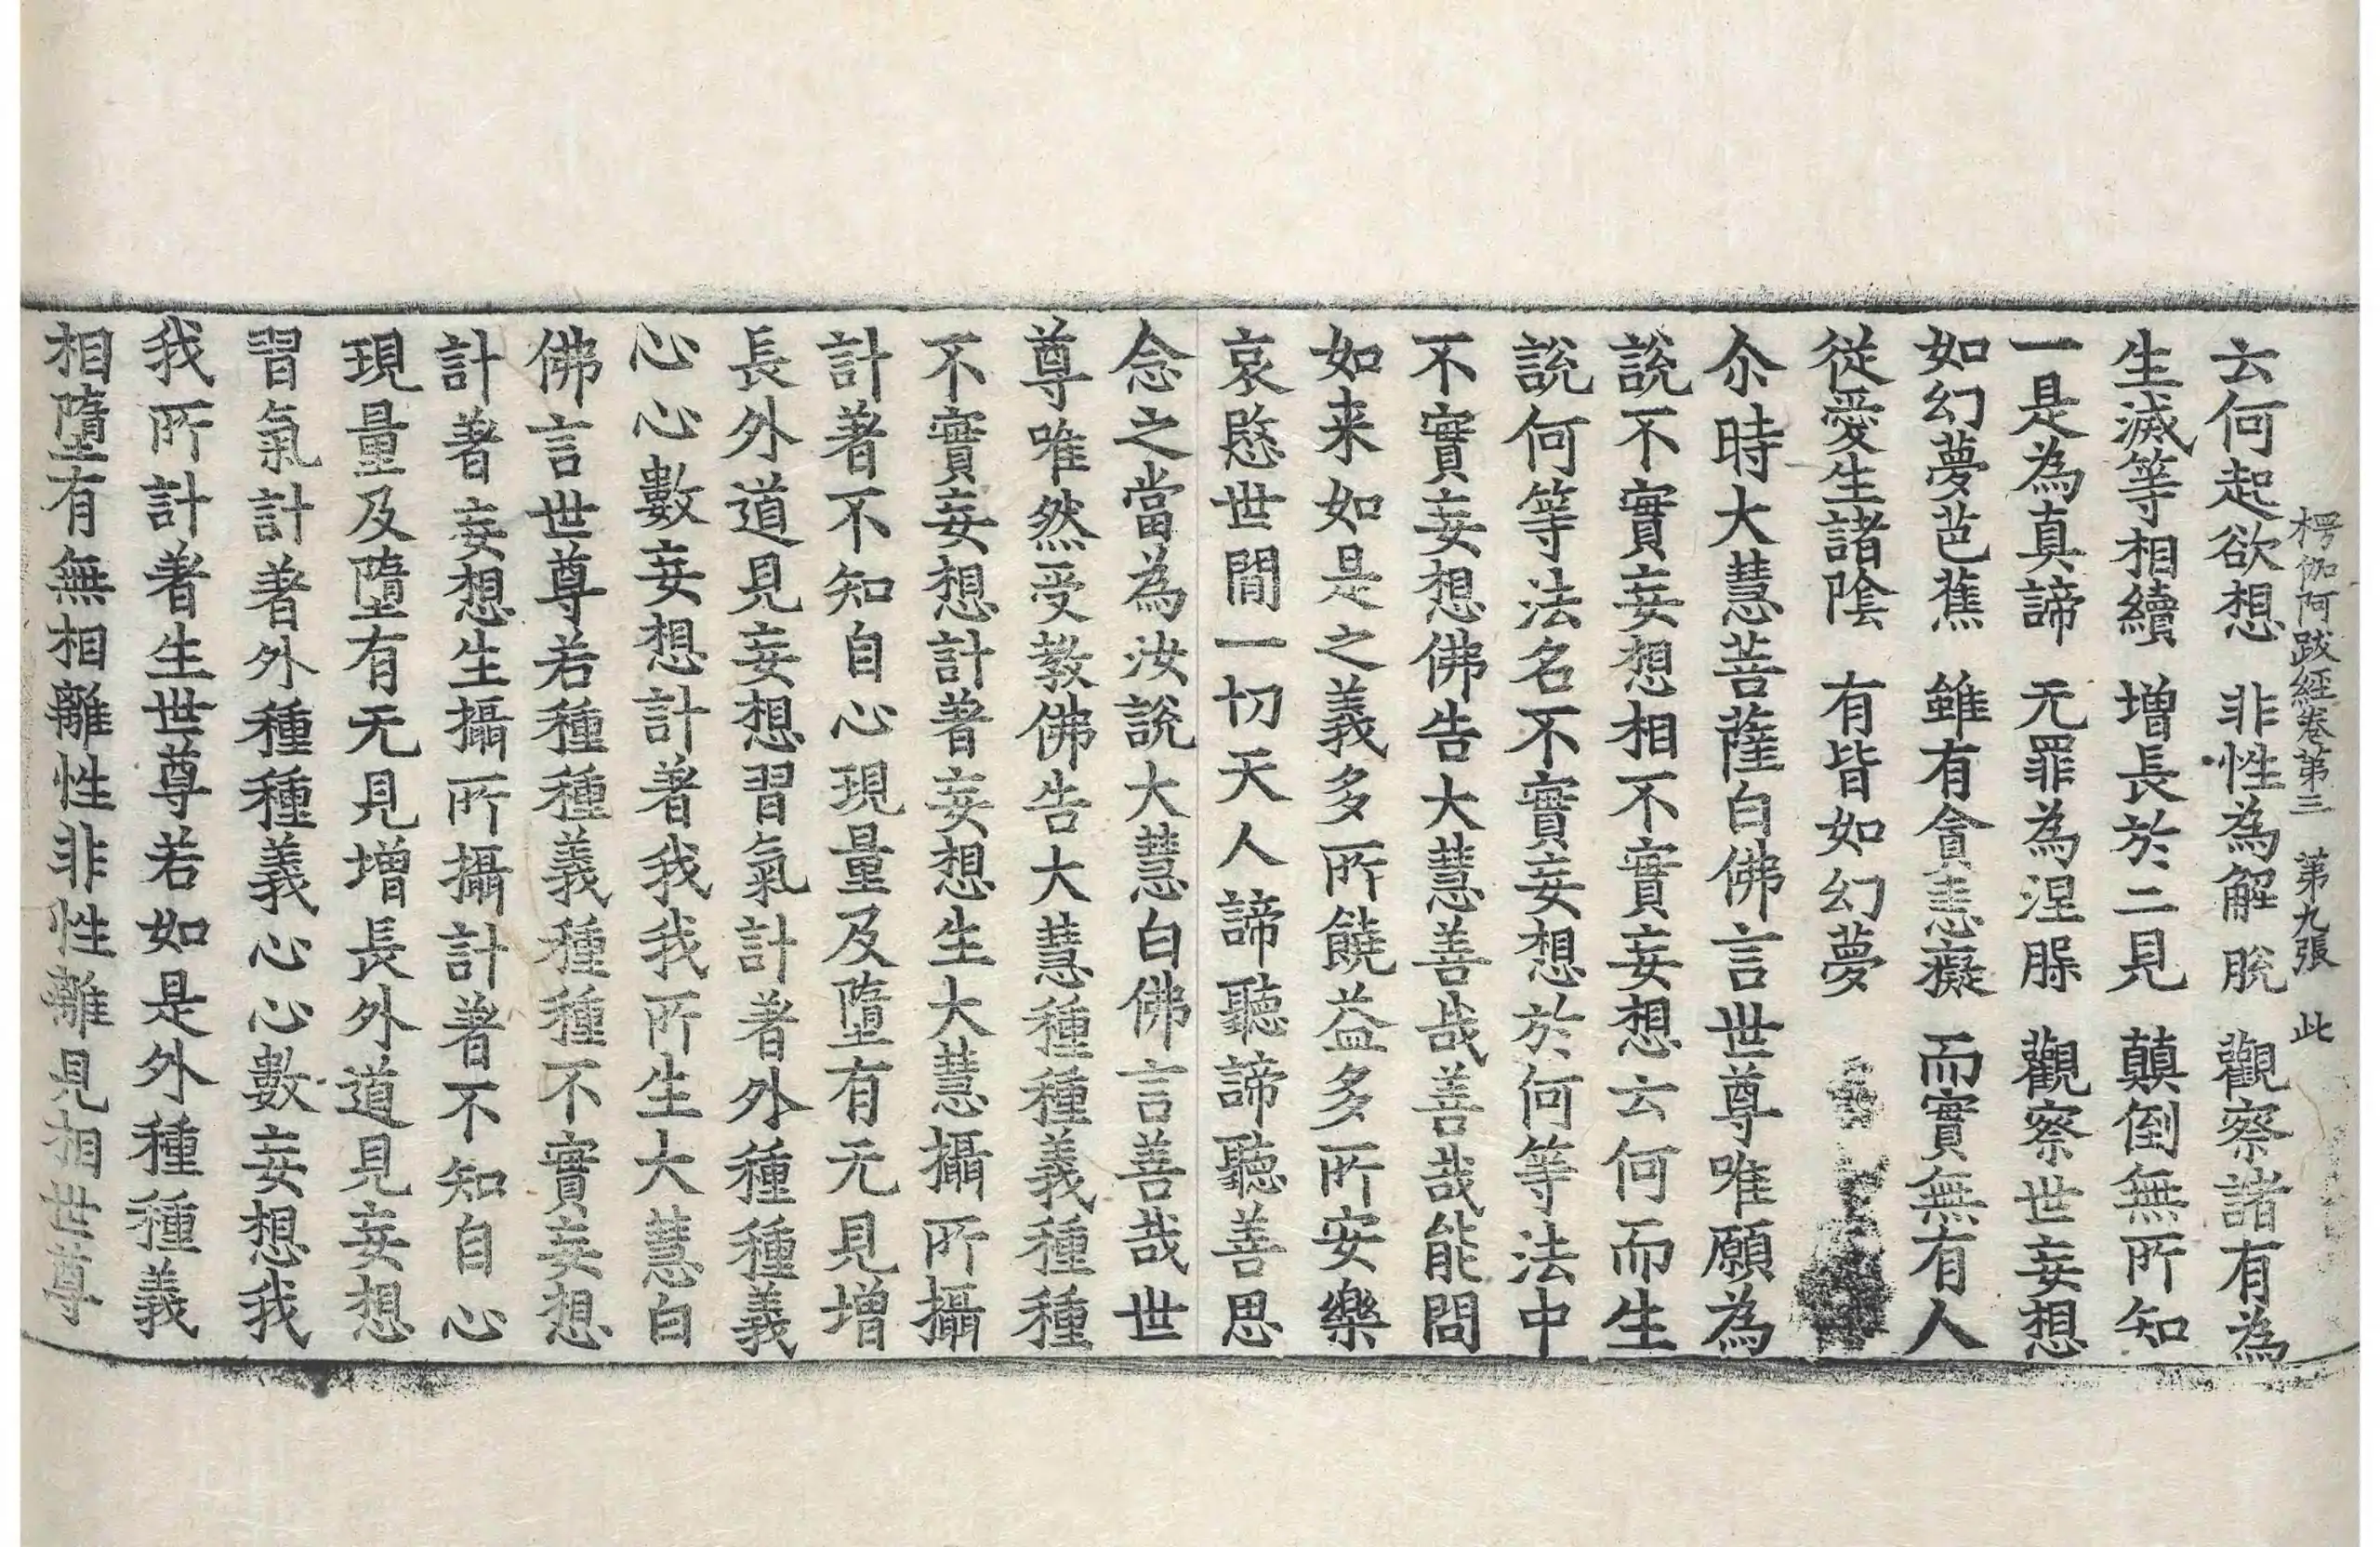 楞伽阿跋經卷第三　第九張　此
云何起欲想　非性為解脫　觀察諸有為
生滅等相續　增長於二見　顛倒無所知
一是為真諦　无罪為涅槃　觀察世妄想
如幻夢芭蕉　雖有貪恚癡　而實無有人
從愛生諸陰　有皆如幻夢
尒時大慧菩薩白佛言世尊唯願為
說不實妄想相不實妄想云何而生
說何等法名不實妄想於何等法中
不實妄想佛告大慧善哉善哉能問
如来如是之義多所饒益多所安樂
哀愍世間一切天人諦聽諦聽善思
念之當為汝說大慧白佛言善哉世
尊唯然受教佛告大慧種種義種種
不實妄想計著妄想生大慧攝所攝
計著不知自心現量及墮有无見增
長外道見妄想習氣計著外種種義
心心數妄想計著我我所生大慧白
佛言世尊若種種義種種不實妄想
計著妄想生攝所攝計著不知自心
現量及墮有无見增長外道見妄想
習氣計著外種種義心心數妄想我
我所計著生世尊若如是外種種義
相墮有無相離性非性離見相世尊